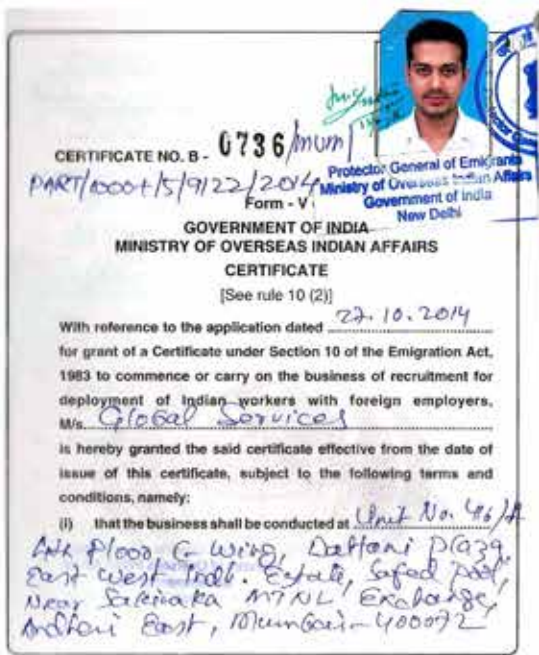 CERTIFICATE NO. B - 0736/mum/
PART/1000+/5/9122/2014
Protector General of Emigrants
Ministry of Overseas Indian Affairs
Government of India
New Delhi
Form - V
GOVERNMENT OF INDIA
MINISTRY OF OVERSEAS INDIAN AFFAIRS
CERTIFICATE
[See rule 10 (2)]
With reference to the application dated 27.10.2014
for grant of a Certificate under Section 10 of the Emigration Act,
1983 to commence or carry on the business of recruitment for
deployment of Indian workers with foreign employers,
M/s. Global Services
is hereby granted the said certificate effective from the date of
issue of this certificate, subject to the following terms and
conditions, namely:
(i) that the business shall be conducted at Unit No. 46/A
4th Floor G Wing, Dattani Plaza,
East West Indl. Estate, Safed Pool,
Near Sakinaka MTNL Exchange,
Andheri East, Mumbai - 400072